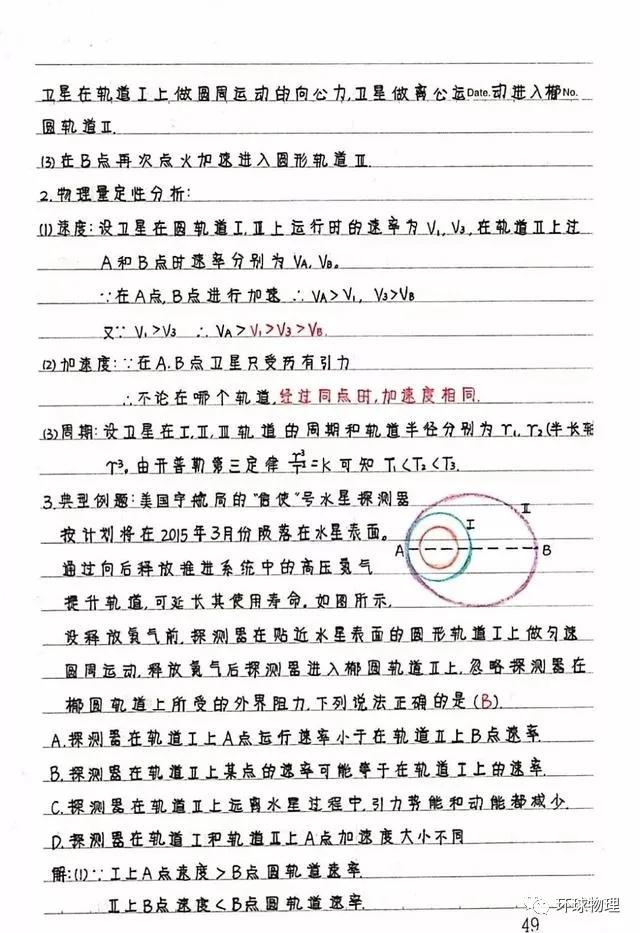 卫星在轨道Ⅰ上做圆周运动的向心力,卫星做离心运Date.动进入椭No.
圆轨道Ⅱ.
(3)在B点再次点火加速进入圆形轨道Ⅲ.
2.物理量定性分析:
(1)速度:设卫星在圆轨道Ⅰ,Ⅲ上运行时的速率为V₁,V₃,在轨道Ⅱ上过
A和B点时速率分别为VA,VB。
∵在A点,B点进行加速 ∴VA>V₁, V₃>VB
又∵ V₁>V₃ ∴VA>V₁>V₃>VB.
(2)加速度:∵在A,B点卫星只受万有引力
∴不论在哪个轨道,经过同点时,加速度相同.
(3)周期:设卫星在Ⅰ,Ⅱ,Ⅲ轨道的周期和轨道半径分别为r₁,r₂(半长轴
r³,由开普勒第三定律r³/T²=K可知T₁<T₂<T₃.
3.典型例题:美国宇航局的"信使"号水星探测器
按计划将在2015年3月份陨落在水星表面。
通过向后释放推进系统中的高压氦气
提升轨道,可延长其使用寿命。如图所示,
设释放氦气前,探测器在贴近水星表面的圆形轨道Ⅰ上做匀速
圆周运动,释放氦气后探测器进入椭圆轨道Ⅱ上,忽略探测器在
椭圆轨道上所受的外界阻力,下列说法正确的是(B).
A.探测器在轨道Ⅰ上A点运行速率小于在轨道Ⅱ上B点速率
B.探测器在轨道Ⅱ上某点的速率可能等于在轨道Ⅰ上的速率.
C.探测器在轨道Ⅱ上远离水星过程中,引力势能和动能都减少.
D.探测器在轨道Ⅰ和轨道Ⅱ上A点加速度大小不同
解:(1)∵Ⅰ上A点速度>B点圆轨道速率
Ⅱ上B点速度<B点圆轨道速率.
Ⅰ
Ⅱ
A
B
环球物理
49